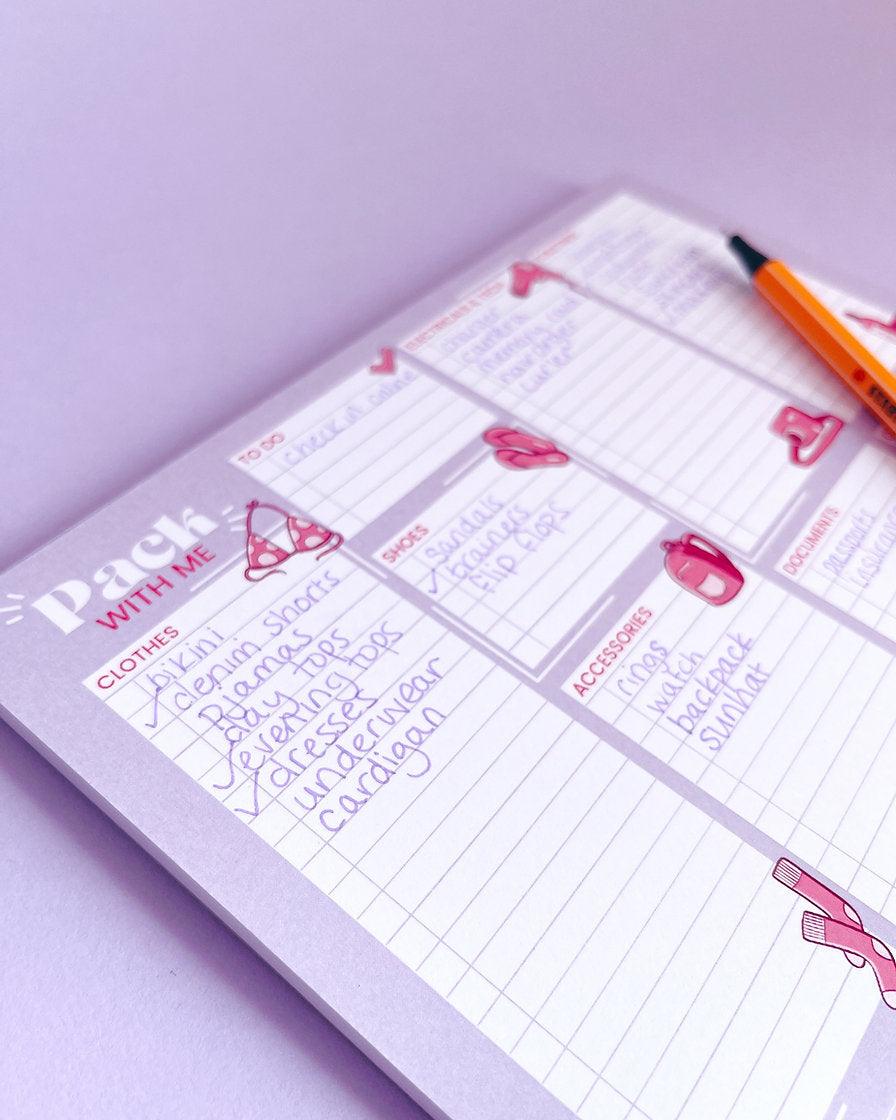 Pack
WITH ME
CLOTHES
bikini
✓ denim shorts
pjamas
day tops
✓ evening tops
✓ dresses
underwear
cardigan
TO DO
check in online
SHOES
sandals
✓ trainers
flip flops
ACCESSORIES
rings
watch
backpack
sunhat
charger
camera
memory card
hair dryer
curler
DOCUMENTS
passports